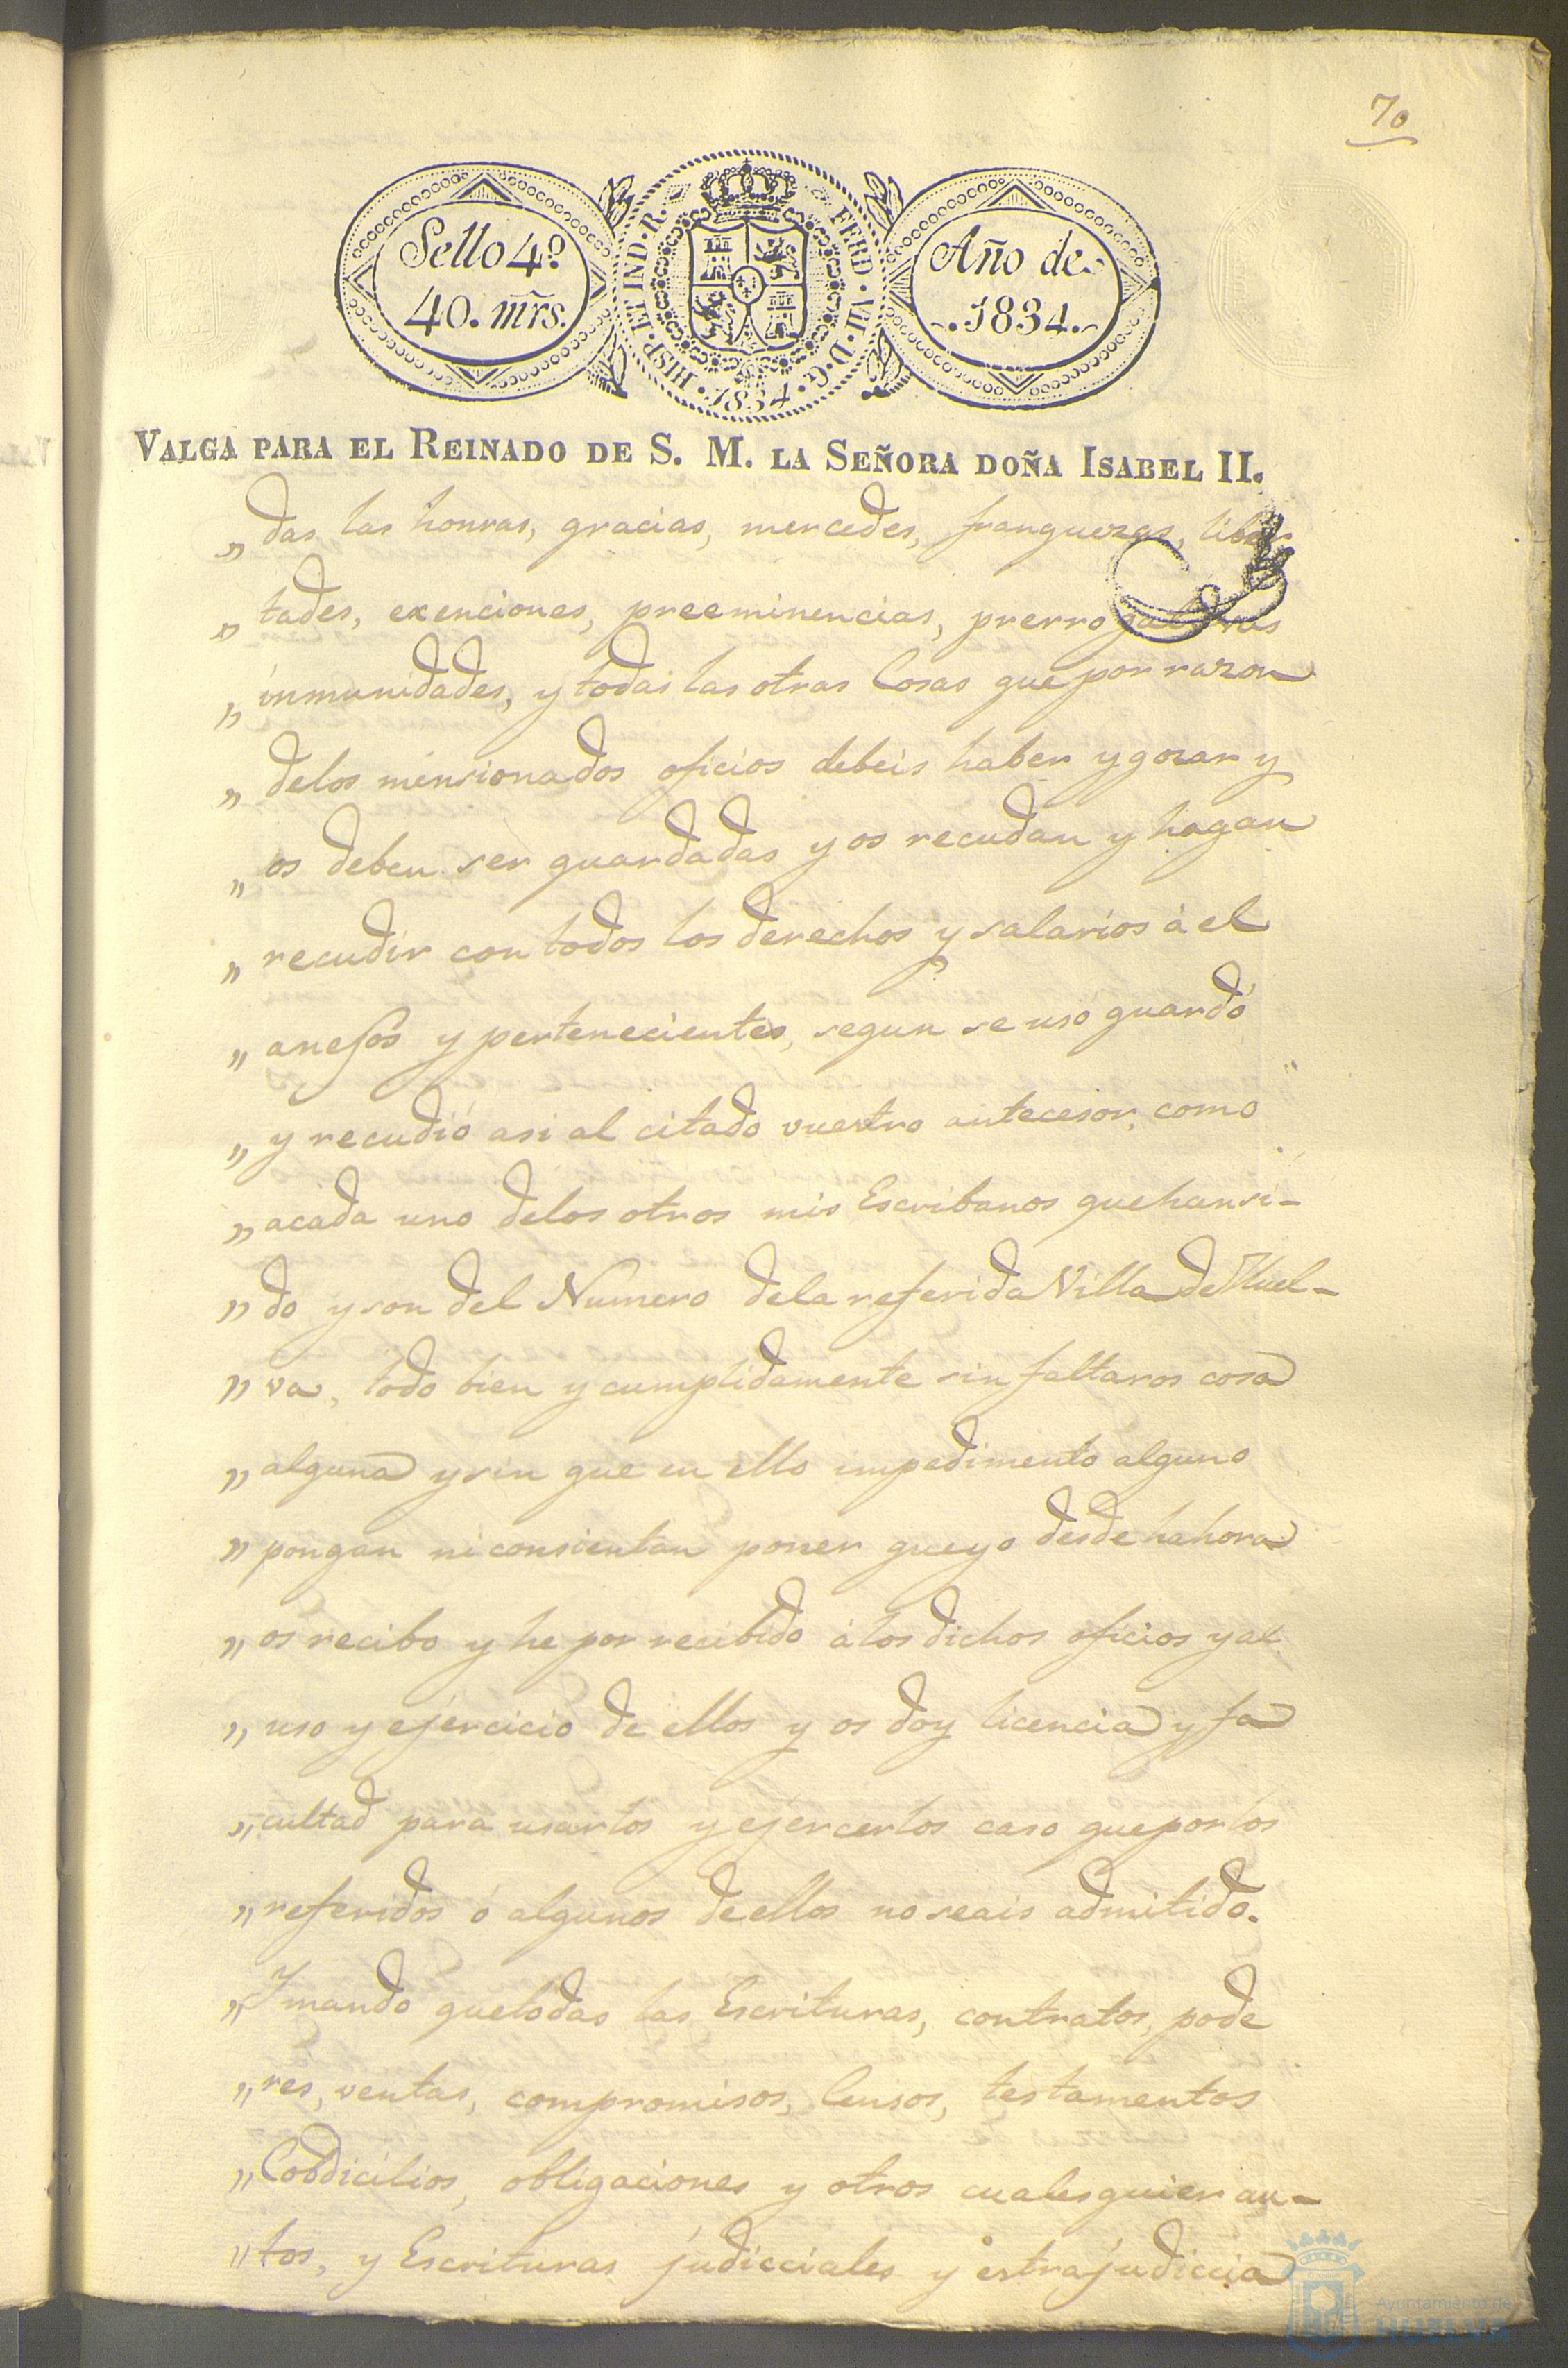 70
Sello 4º
40. mrs.
HISP. ET IND. R.
FERD. VII. D. G.
1834
Año de
1834.
VALGA PARA EL REINADO DE S. M. LA SEÑORA DOÑA ISABEL II.
„ das las honras, gracias, mercedes, franquezas, liber
„ tades, exenciones, preeminencias, prerrogativas
„ inmunidades, y todas las otras Cosas que por razon
„ delos mensionados oficios debeis haber y gozar y
„ os deben ser guardadas y os recudan y hagan
„ recudir con todos los derechos y salarios á el
„ anesos y pertenecientes, segun se usó guardó
„ y recudió asi al citado vuestro antecesor, como
„ acada uno delos otros mis Escribanos que han si-
„ do y son del Numero dela referida Villa de Huel-
„ va, todo bien y cumplidamente sin faltaros cosa
„ alguna y sin que en ello impedimento alguno
„ pongan ni consientan poner que yo desde hahora
„ os recibo y he por recibido á los dichos oficios y al
„ uso y ejercicio de ellos y os doy licencia y fa
„ cultad para usarlos y ejercerlos caso que por los
„ referidos ó algunos de ellos no seais admitido.
„ Y mando que todas las Escrituras, contratos, pode
„ res, ventas, compromisos, Censos, testamentos
„ Cobdicilios, obligaciones y otros cualesquier au-
„ tos, y Escrituras judicciales y estrajudiccia
Ayuntamiento de
HUELVA